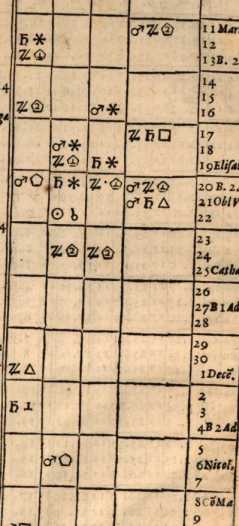 ♂ ♃ 11 Mar
♄ ⚹ 12
♃ 13 B. 2
14
15
♃ ♂ ⚹ 16
♃ ♄ □ 17
♂ ⚹ 18
♃ ♄ ⚹ 19 Elisa
♂ ⬠ ♄ ⚹ ♃ ♂ ♃ 20 B. 2.
♂ ♄ △ 21 Obl V
☉ 22
23
♃ ♃ 24
25 Catha
26
27 B 1 Ad
28
29
30
♃ △ 1 Dece.
2
♄ 3
4 B 2 Ad
5
♂ ⬠ 6 Nicol.
7
8 Cō Ma
9